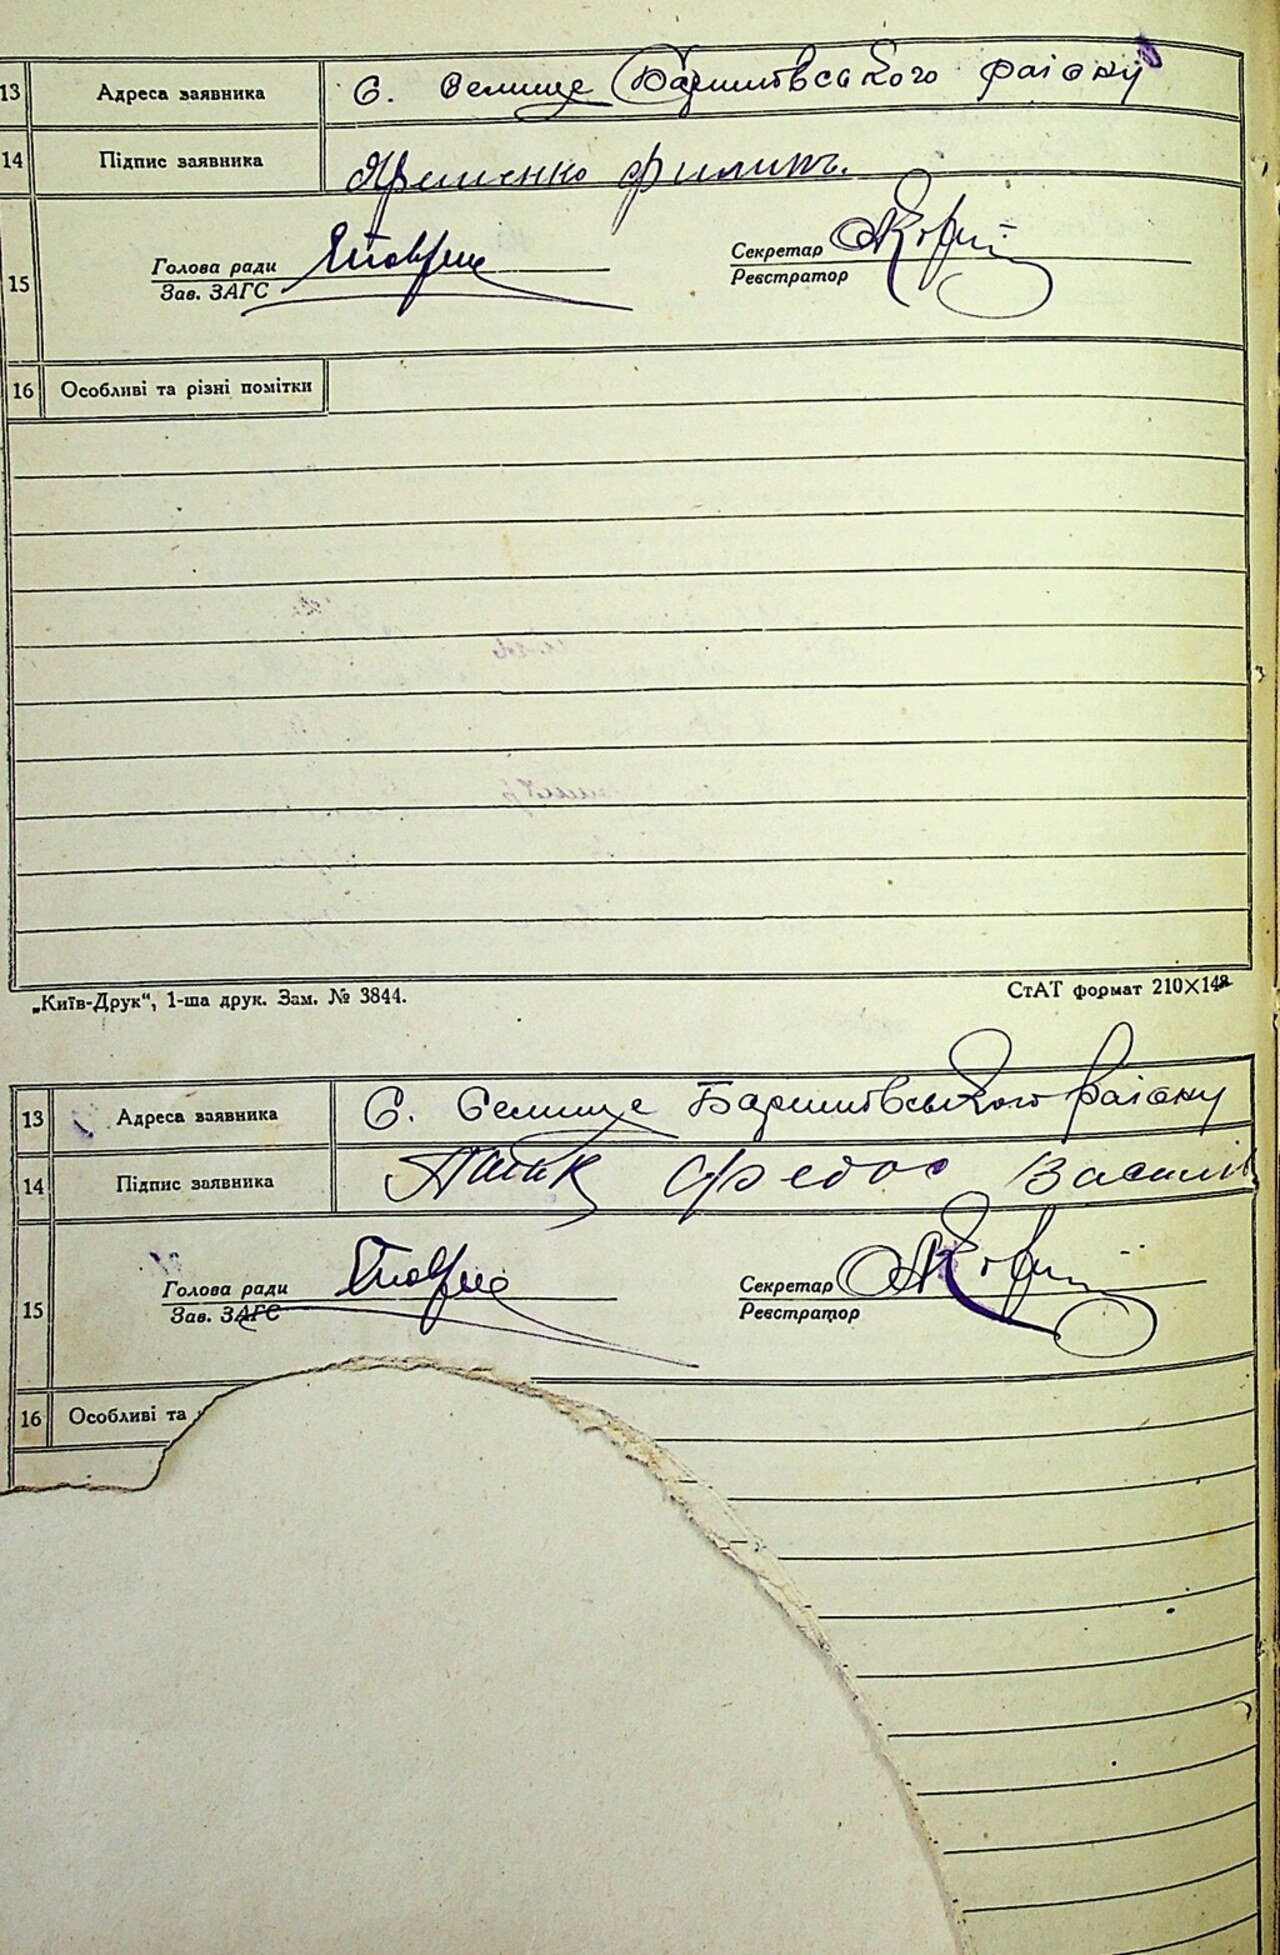 13 Адреса заявника С. Селище Баришівського району
14 Підпис заявника Ярешенко Филипъ.
15 Голова ради Секретар
Зав. ЗАГС Реєстратор
16 Особливі та різні помітки
„Київ-Друк“, 1-ша друк. Зам. № 3844. СтАТ формат 210×148
13 Адреса заявника С. Селище Баришівського району
14 Підпис заявника Федос Василів
15 Голова ради Секретар
Зав. ЗАГС Реєстратор
16 Особливі та